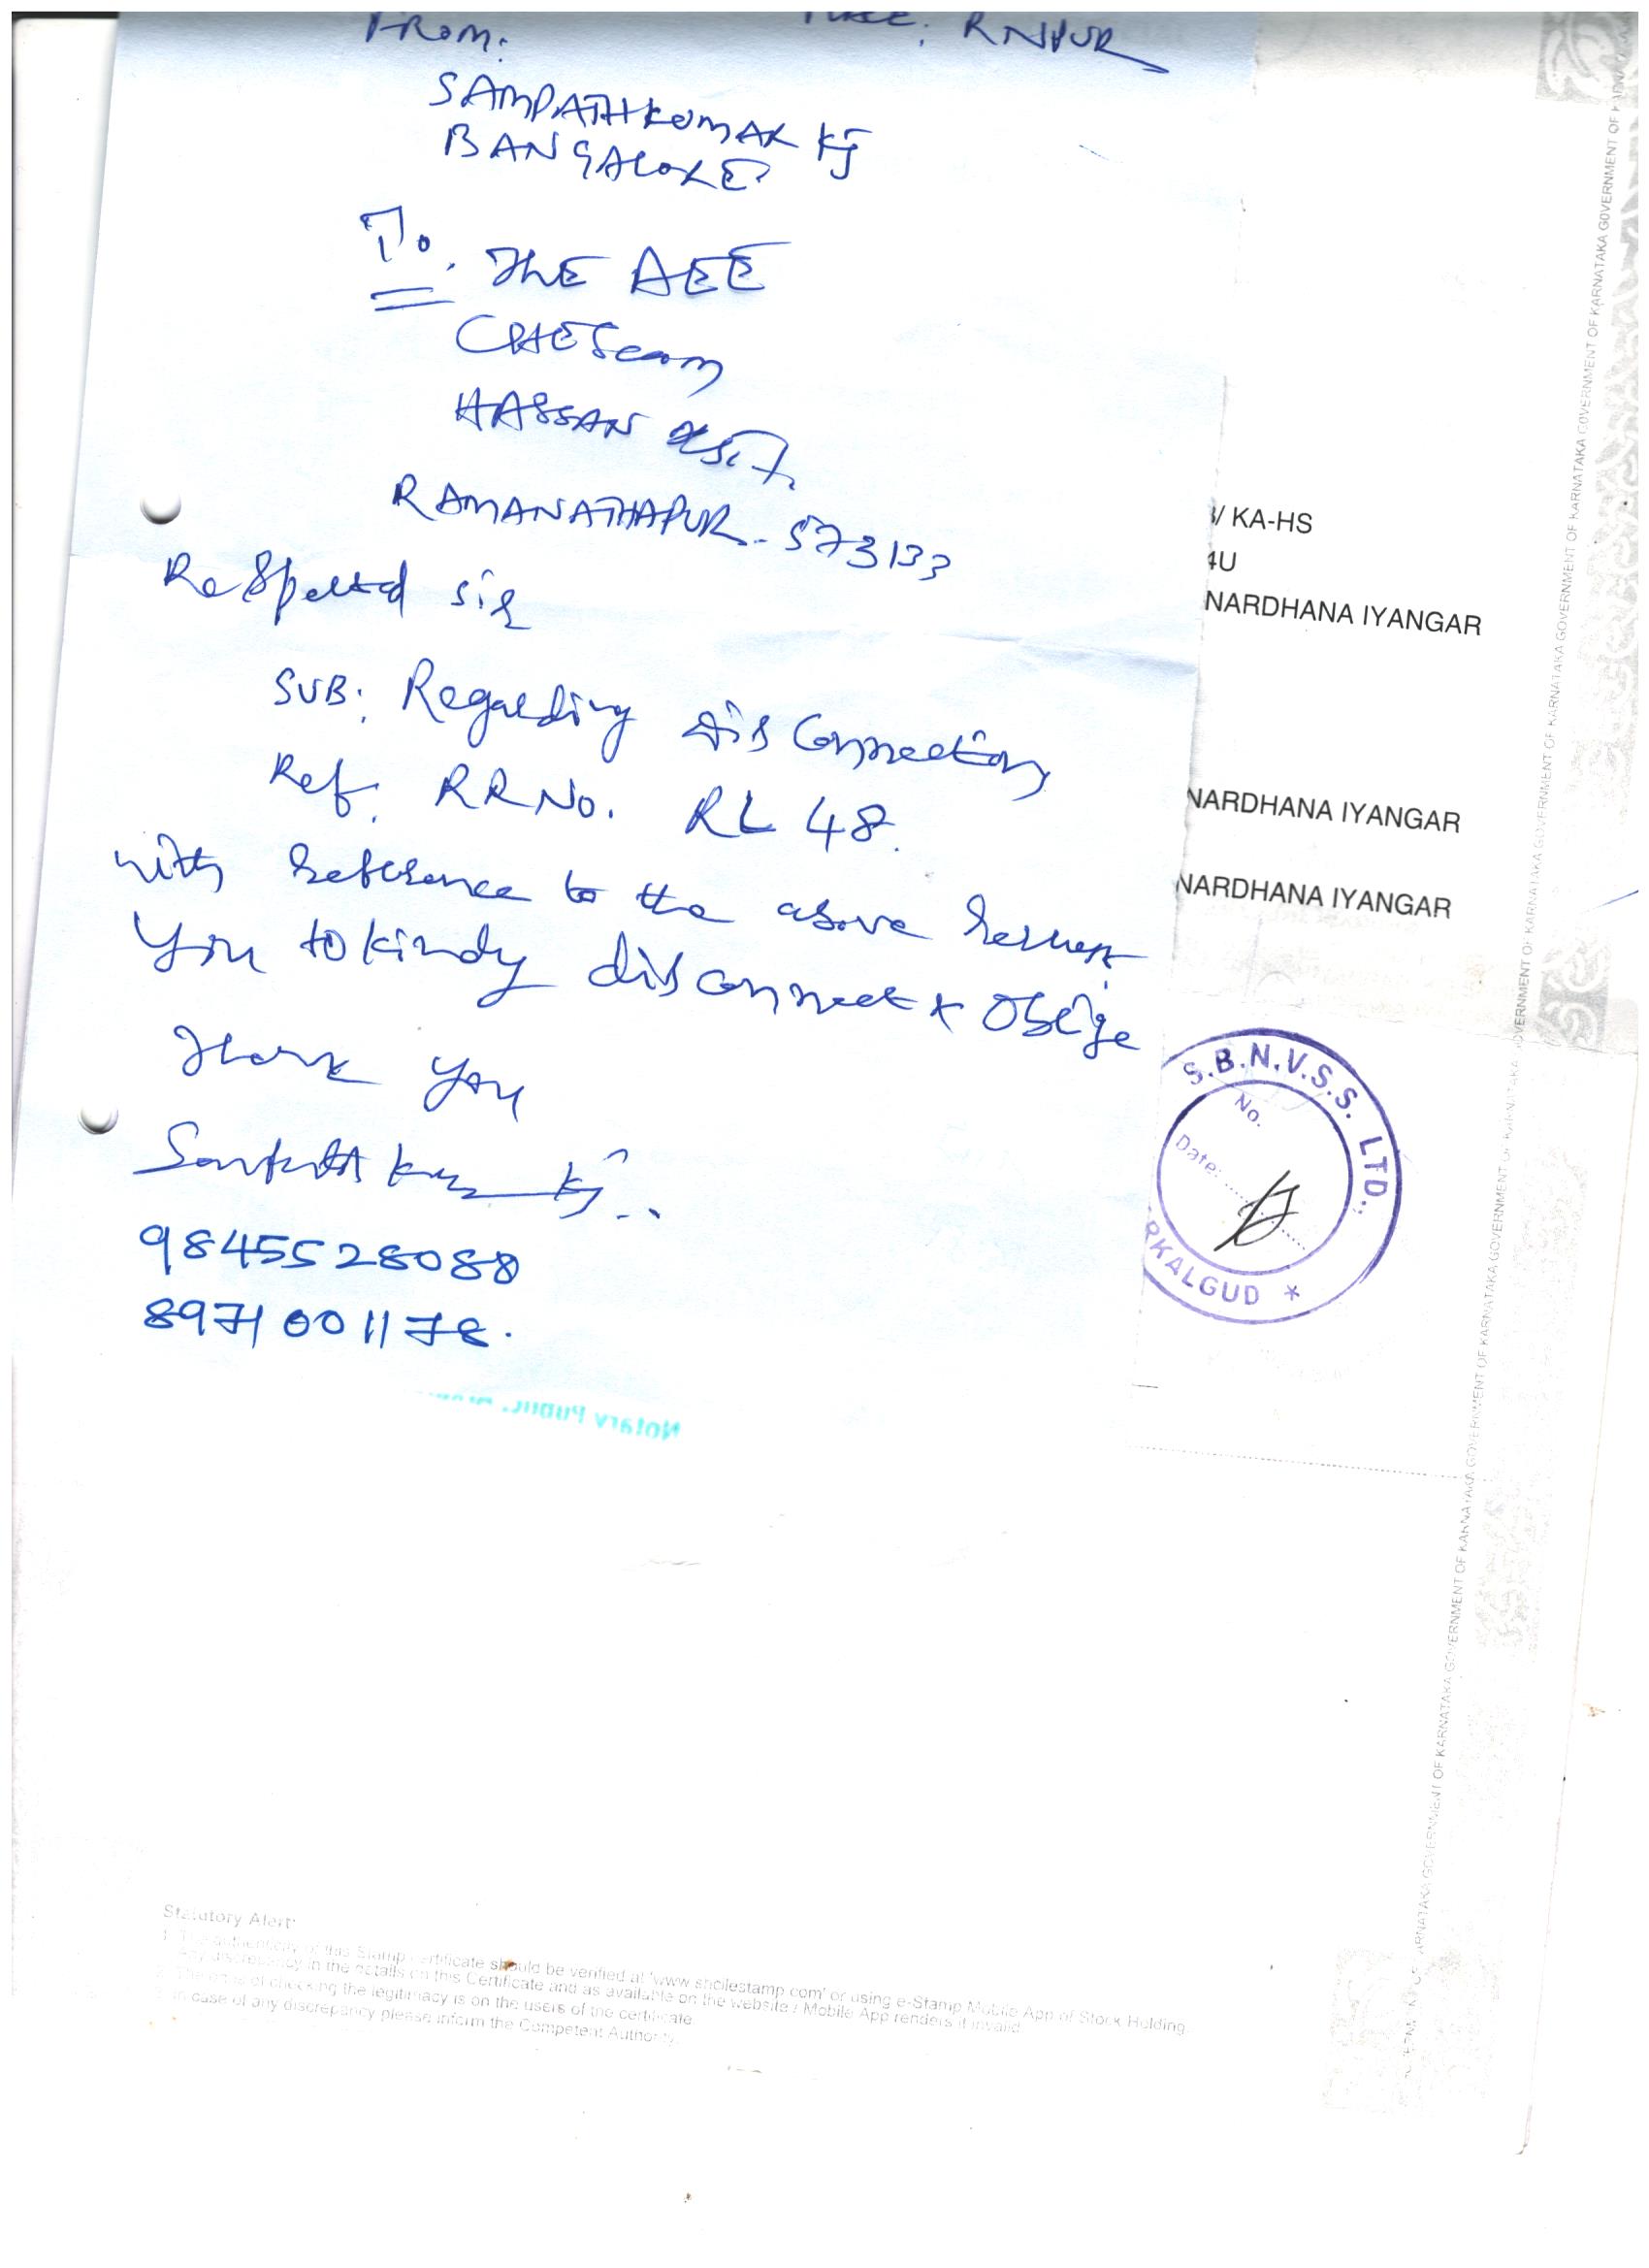 From: Place: RNPUR
SAMPATHKUMAR KJ
BANGALORE
To, THE AEE
CHEScom
HASSAN Dist.
RAMANATHAPUR - 573133
Respected sir
SUB: Regarding disconnection
Ref: RRNo. RL 48.
with reference to the above request
You to kindy disconnect & Oblige
Thank You
Sampath kumar kj..
9845528088
8971001178.
/ KA-HS
4U
NARDHANA IYANGAR
NARDHANA IYANGAR
NARDHANA IYANGAR
S.B.N.V.S.S. LTD.,
No.
Date:
RKALGUD *
Notary Public
Statutory Alert:
1. The authenticity of this Stamp certificate should be verified at 'www.shcilestamp.com' or using e-Stamp Mobile App of Stock Holding.
Any discrepancy in the details on this Certificate and as available on the website / Mobile App renders it invalid.
2. The onus of checking the legitimacy is on the users of the certificate.
3. In case of any discrepancy please inform the Competent Authority.
GOVERNMENT OF KARNATAKA GOVERNMENT OF KARNATAKA GOVERNMENT OF KARNATAKA